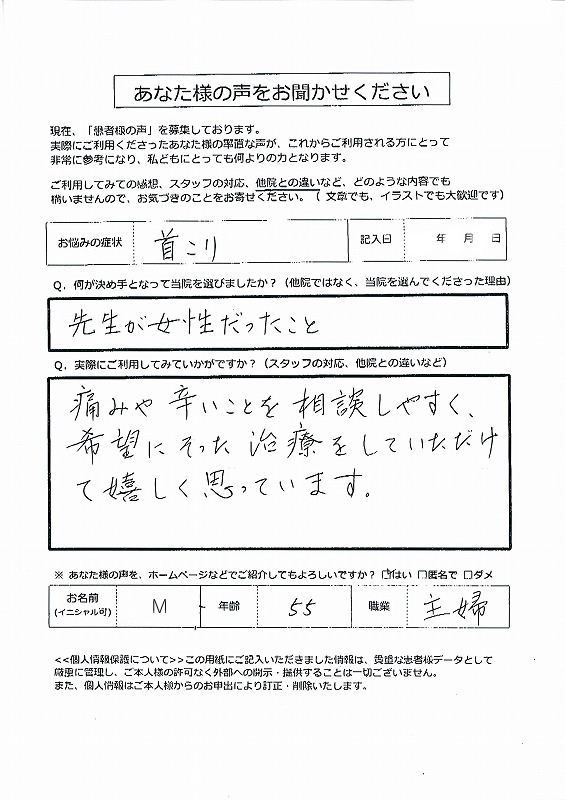 あなた様の声をお聞かせください
現在、「患者様の声」を募集しております。
実際にご利用くださったあなた様の率直な声が、これからご利用される方にとって
非常に参考になり、私どもにとっても何よりの力となります。
ご利用してみての感想、スタッフの対応、他院との違いなど、どのような内容でも
構いませんので、お気づきのことをお寄せください。（ 文章でも、イラストでも大歓迎です）
お悩みの症状 首こり 記入日 年 月 日
Q．何が決め手となって当院を選びましたか？（他院ではなく、当院を選んでくださった理由）
先生が女性だったこと
Q．実際にご利用してみていかがですか？（スタッフの対応、他院との違いなど）
痛みや辛いことを相談しやすく、
希望にそった治療をしていただけ
て嬉しく思っています。
※ あなた様の声を、ホームページなどでご紹介してもよろしいですか？ ☑はい □匿名で □ダメ
お名前 M 年齢 55 職業 主婦
(イニシャル可)
<<個人情報保護について>>この用紙にご記入いただきました情報は、貴重な患者様データとして
厳重に管理し、ご本人様の許可なく外部への開示・提供することは一切ございません。
また、個人情報はご本人様からのお申出により訂正・削除いたします。